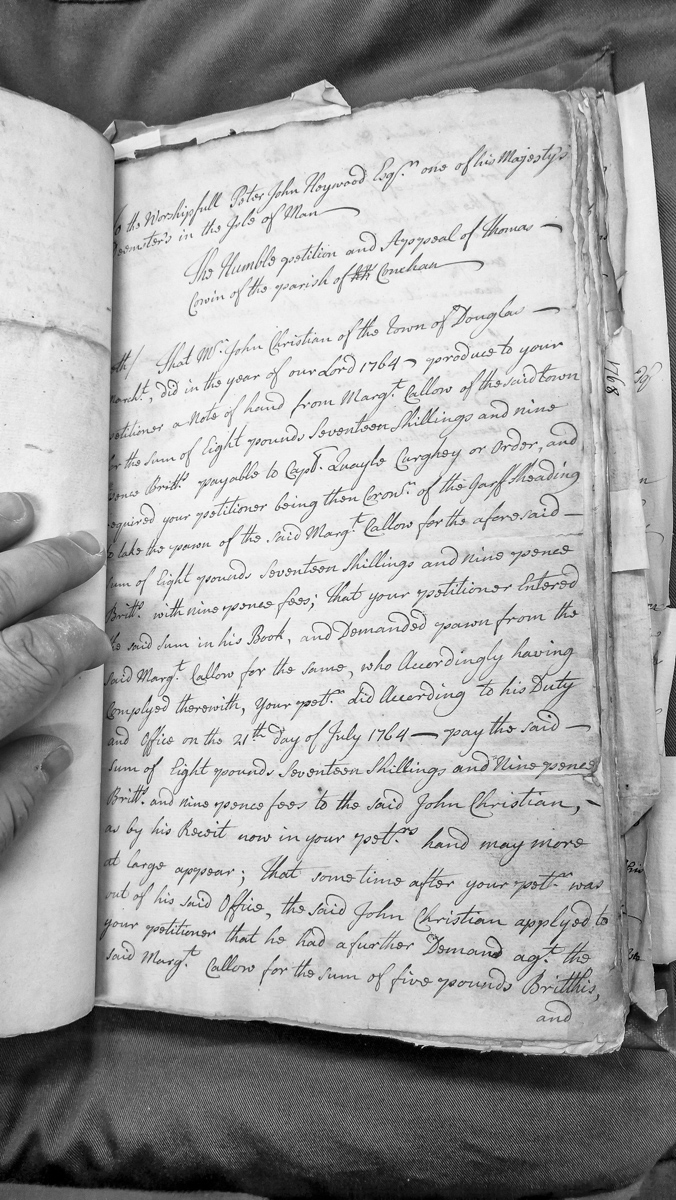 To the Worshipfull Peter John Heywood Esqr. one of his Majesty's
Deemster's in the Isle of Man —
The Humble petition and Appeal of Thomas —
Cowin of the parish of KK Conchan —
eth/ That Mr. John Christian of the Town of Douglas —
March.t, did in the year of our Lord 1764 — produce to your
petitioner a Note of hand from Marg.t Callow of the said town
for the sum of Eight pounds Seventeen Shillings and nine
pence Britt.s payable to Capt. Quayle Curghey or Order, and
required your petitioner being then Coron.r of the Garf Sheading
to take the pawn of the said Marg.t Callow for the aforesaid —
sum of Eight pounds Seventeen Shillings and nine pence
Britt.s with nine pence fees; That your petitioner Entered
the said sum in his Book, and Demanded pawn from the
said Marg.t Callow for the same, who Accordingly having
Complyed therewith, Your pet.r did According to his Duty
and Office on the 21th day of July 1764 — pay the said —
sum of Eight pounds Seventeen Shillings and Nine pence
Britt.s and nine pence fees to the said John Christian, —
as by his Receit now in your pet.rs hand may more
at large appear; That some time after your pet.r was
out of his said Office, the said John Christian applyed to
your petitioner that he had a further Demand ag.t the
said Marg.t Callow for the sum of five pounds Britthis,
and
1768